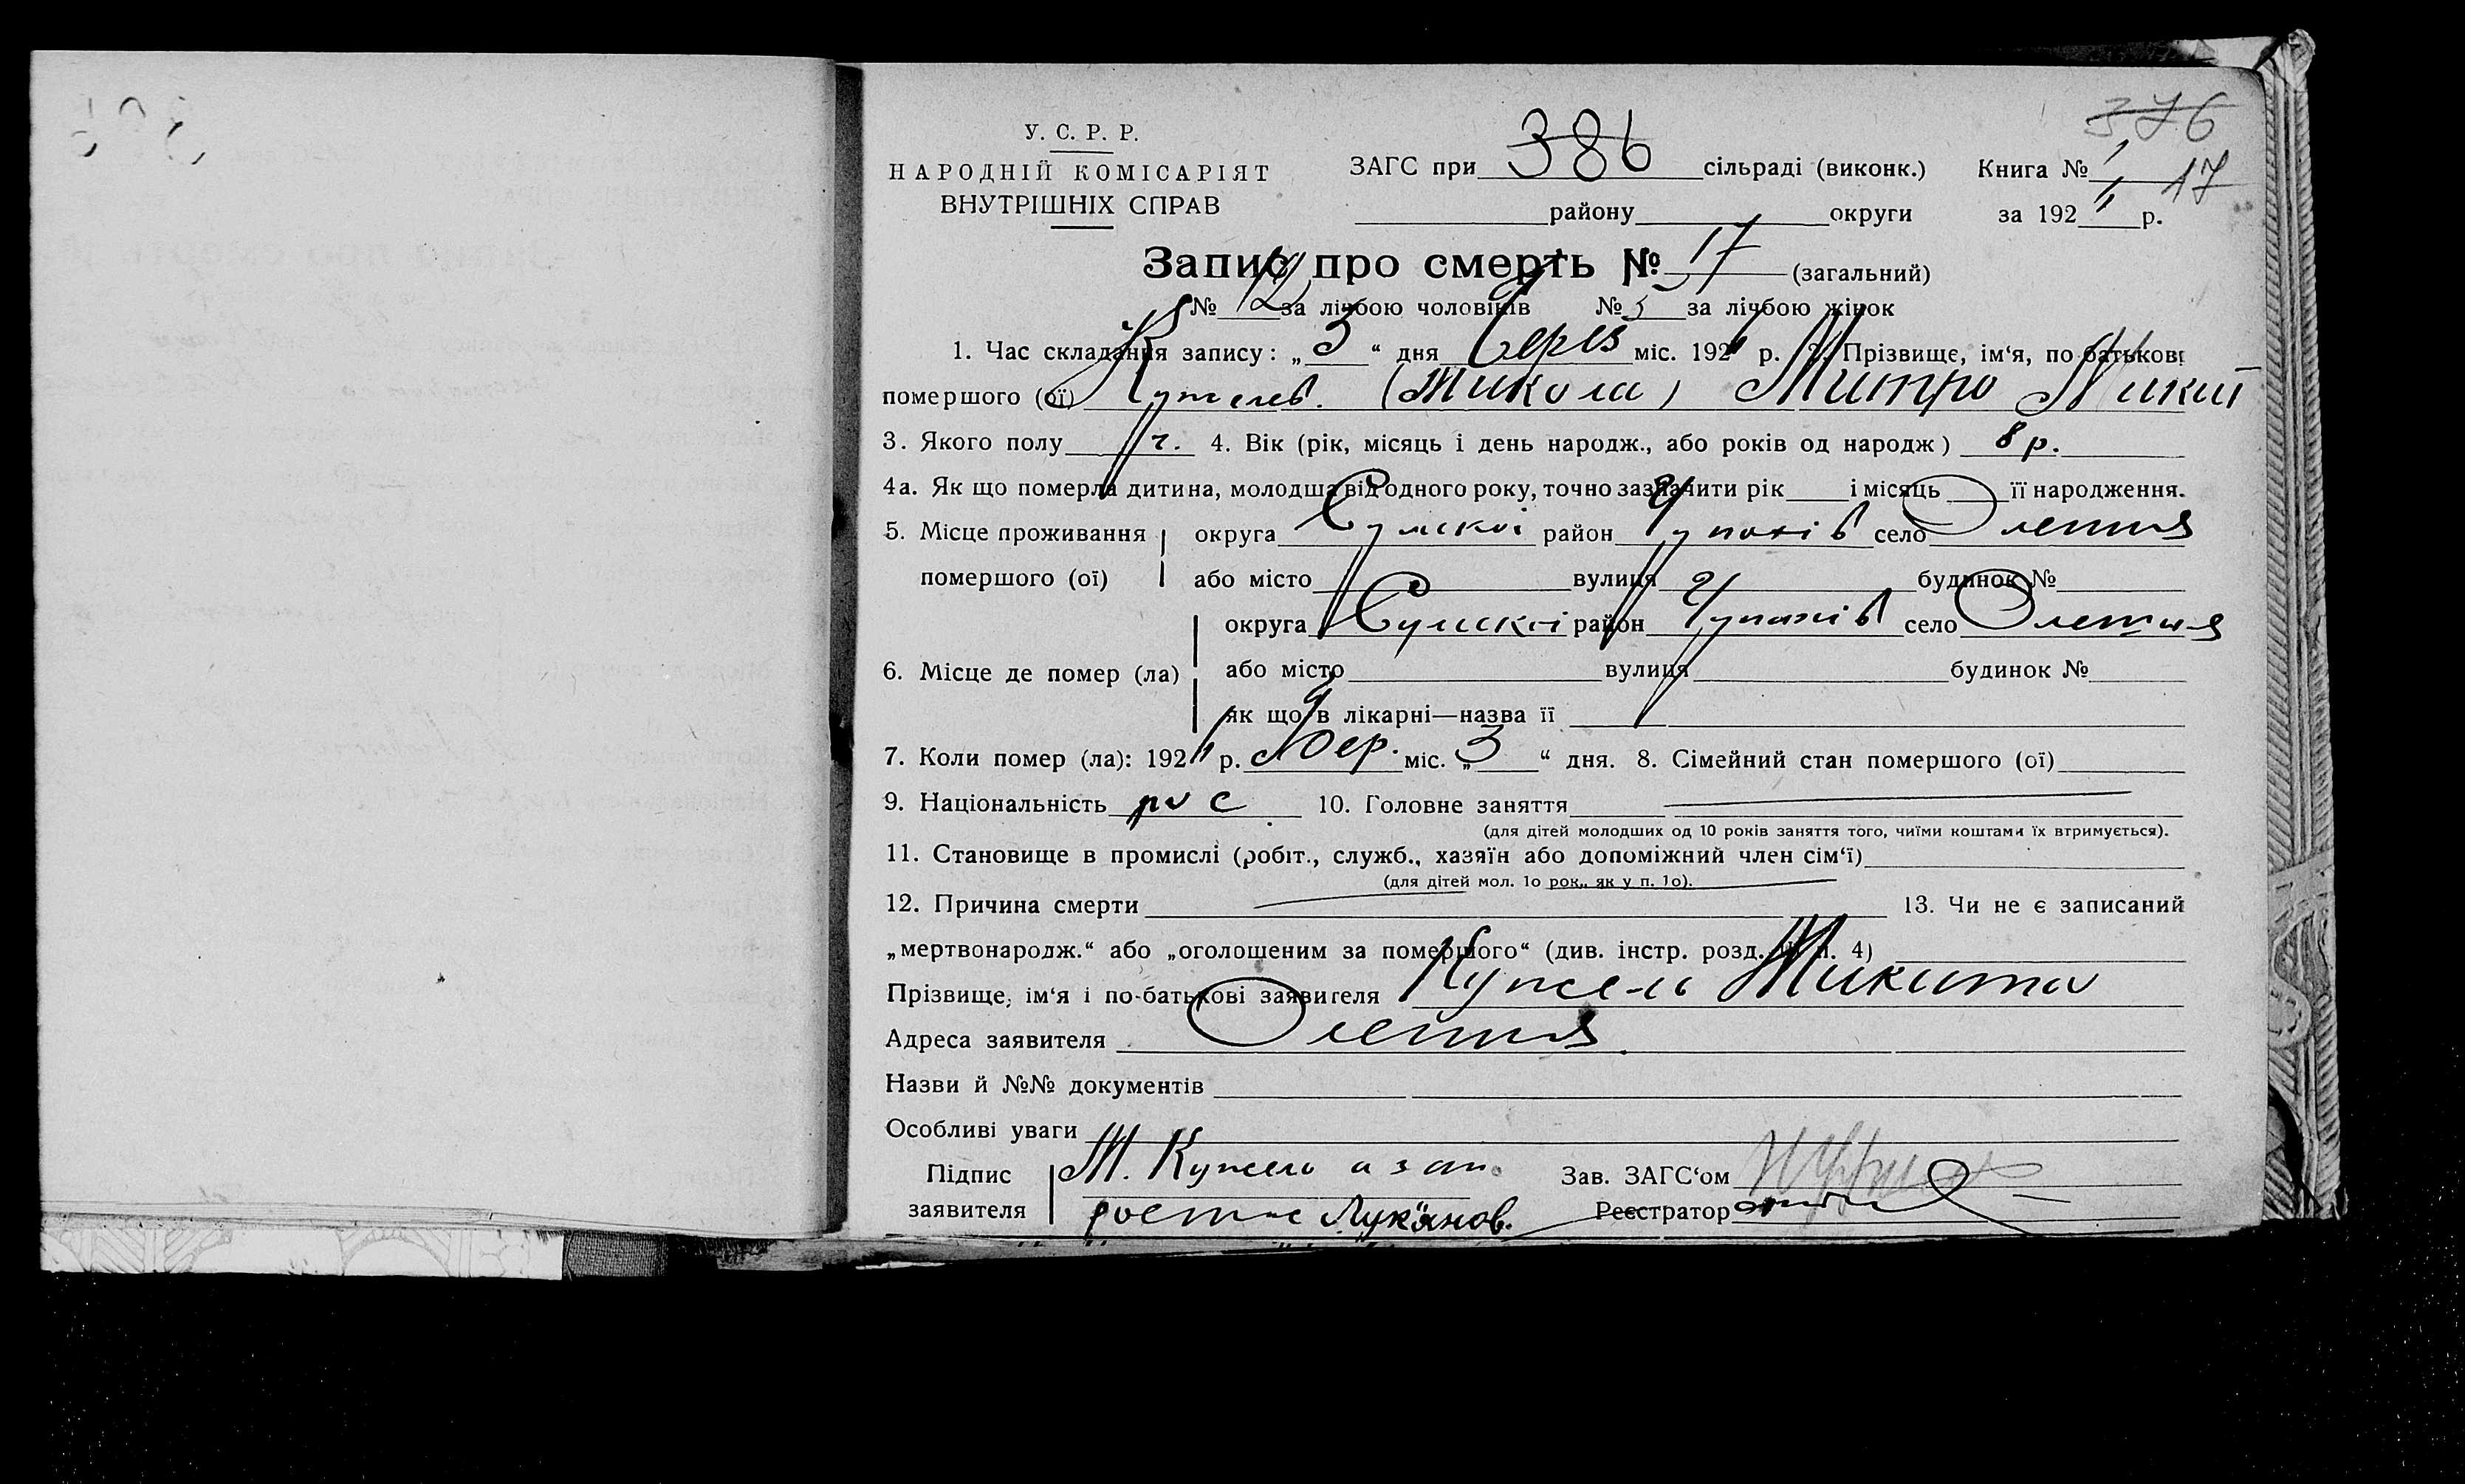 376
У. С. Р. Р.
НАРОДНІЙ КОМІСАРІЯТ
ВНУТРІШНІХ СПРАВ
ЗАГС при 386 сільраді (виконк.) Книга № 1
17
району округи за 192 р.
Запис про смерть № 17 (загальний)
№ 12 за лічбою чоловіків № 5 за лічбою жінок
1. Час складання запису: „3“ дня Черв міс. 192 р. 2. Прізвище, ім‘я, по батькові
помершого (ої) (Микола) Митро Микит
3. Якого полу ч. 4. Вік (рік, місяць і день народж., або років од народж) 8 р.
4а. Як що померла дитина, молодша від одного року, точно зазначити рік і місяць її народження.
5. Місце проживання помершого (ої) округа Сумскої район село
або місто вулиця будинок №
6. Місце де помер (ла) округа Сумскої район село
або місто вулиця будинок №
як що в лікарні—назва її
7. Коли помер (ла): 192 р. міс. „3“ дня. 8. Сімейний стан помершого (ої)
9. Національність рус 10. Головне заняття
(для дітей молодших од 10 років заняття того, чиїми коштами їх втримується).
11. Становище в промислі (робіт., служб., хазяїн або допоміжний член сім‘ї)
(для дітей мол. 1о рок., як у п. 1о).
12. Причина смерти 13. Чи не є записаний
„мертвонародж.“ або „оголошеним за помершого“ (див. інстр. розд. п. 4)
Прізвище, ім‘я і по-батькові заявителя Кужель Микита
Адреса заявителя
Назви й №№ документів
Особливі уваги
Підпис заявителя М. Кужель а за
Лук'янов.
Зав. ЗАГС‘ом
Реєстратор